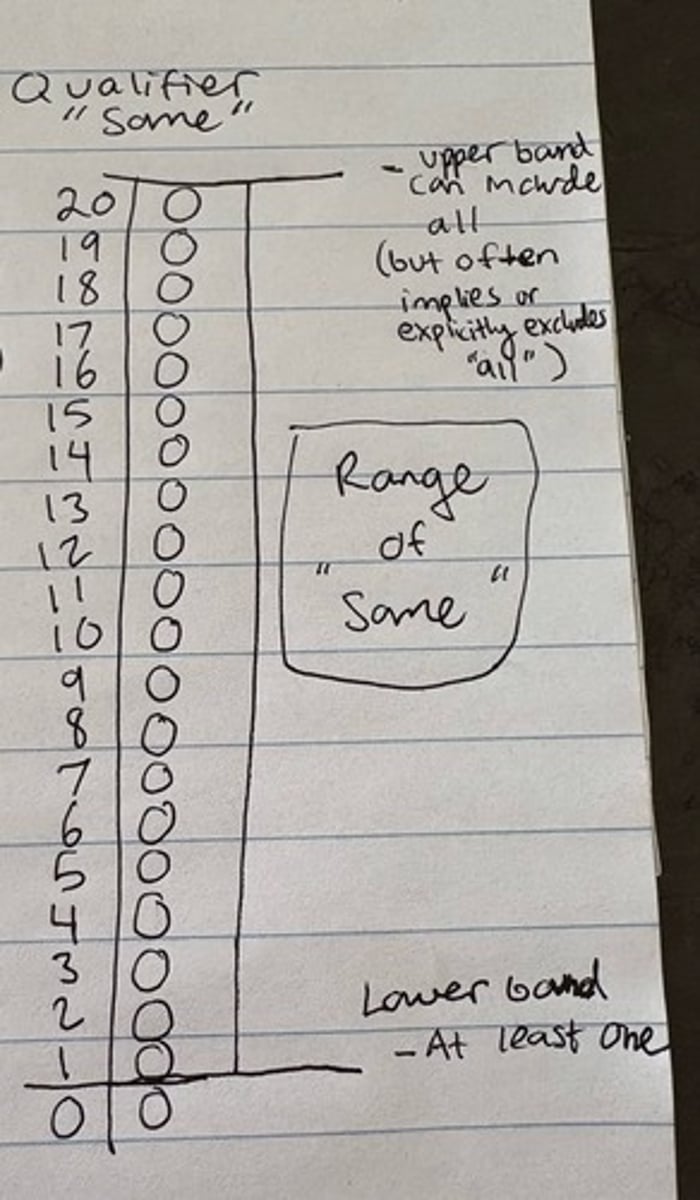 Qualifier
"Some"
- upper band
can include
all
(but often
implies or
explicitly excludes
"all")
20 O
19 O
18 O
17 O
16 O
15 O
14 O
13 O
12 O
11 O
10 O
9 O
8 O
7 O
6 O
5 O
4 O
3 O
2 O
1 O
0 O
Range
of
"Some"
Lower band
- At least one